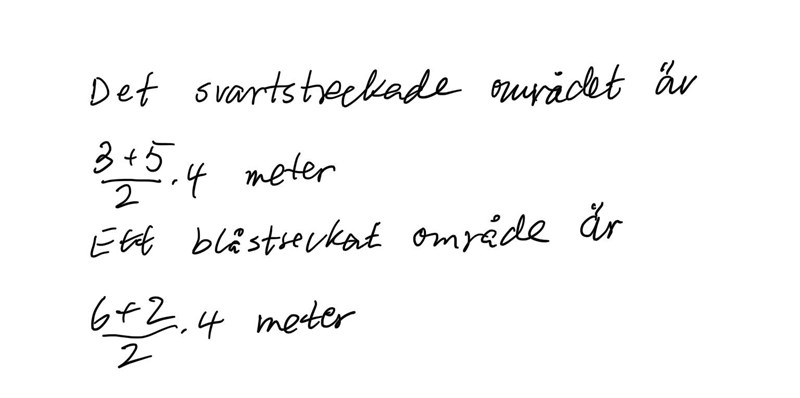 Det svartstreckade området är
3+5/2 · 4 meter
Ett blåstreckat område är
6+2/2 · 4 meter